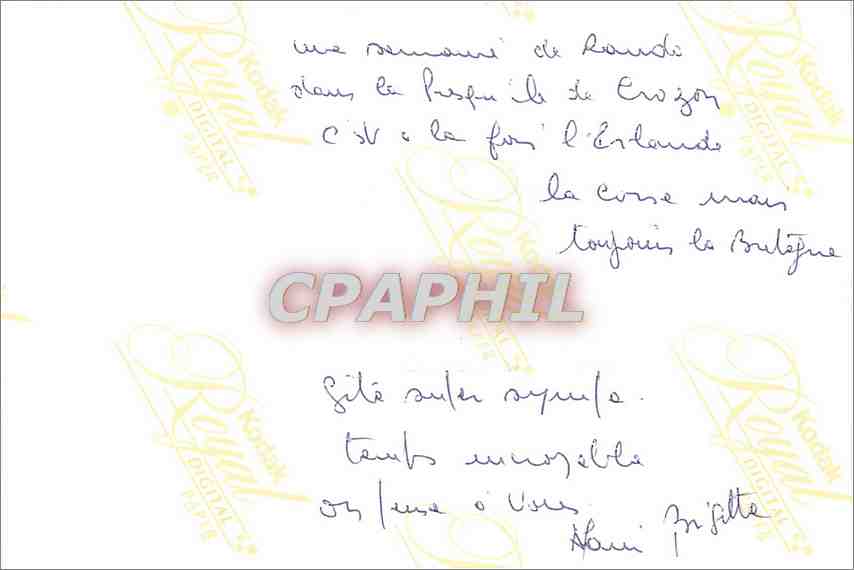 une semaine de Rando
dans la Presqu'ile de Crozon
C'est a la fois l'Irlande
la Corse mais
toujours la Bretagne
CPAPHIL
Gite super sympa.
temps incroyable
on pense à vous.
Alain Brigitte
Kodak
Royal
DIGITAL
PAPER
Kodak
Royal
DIGITAL
PAPER
Kodak
Royal
DIGITAL
PAPER
Kodak
Royal
DIGITAL
PAPER